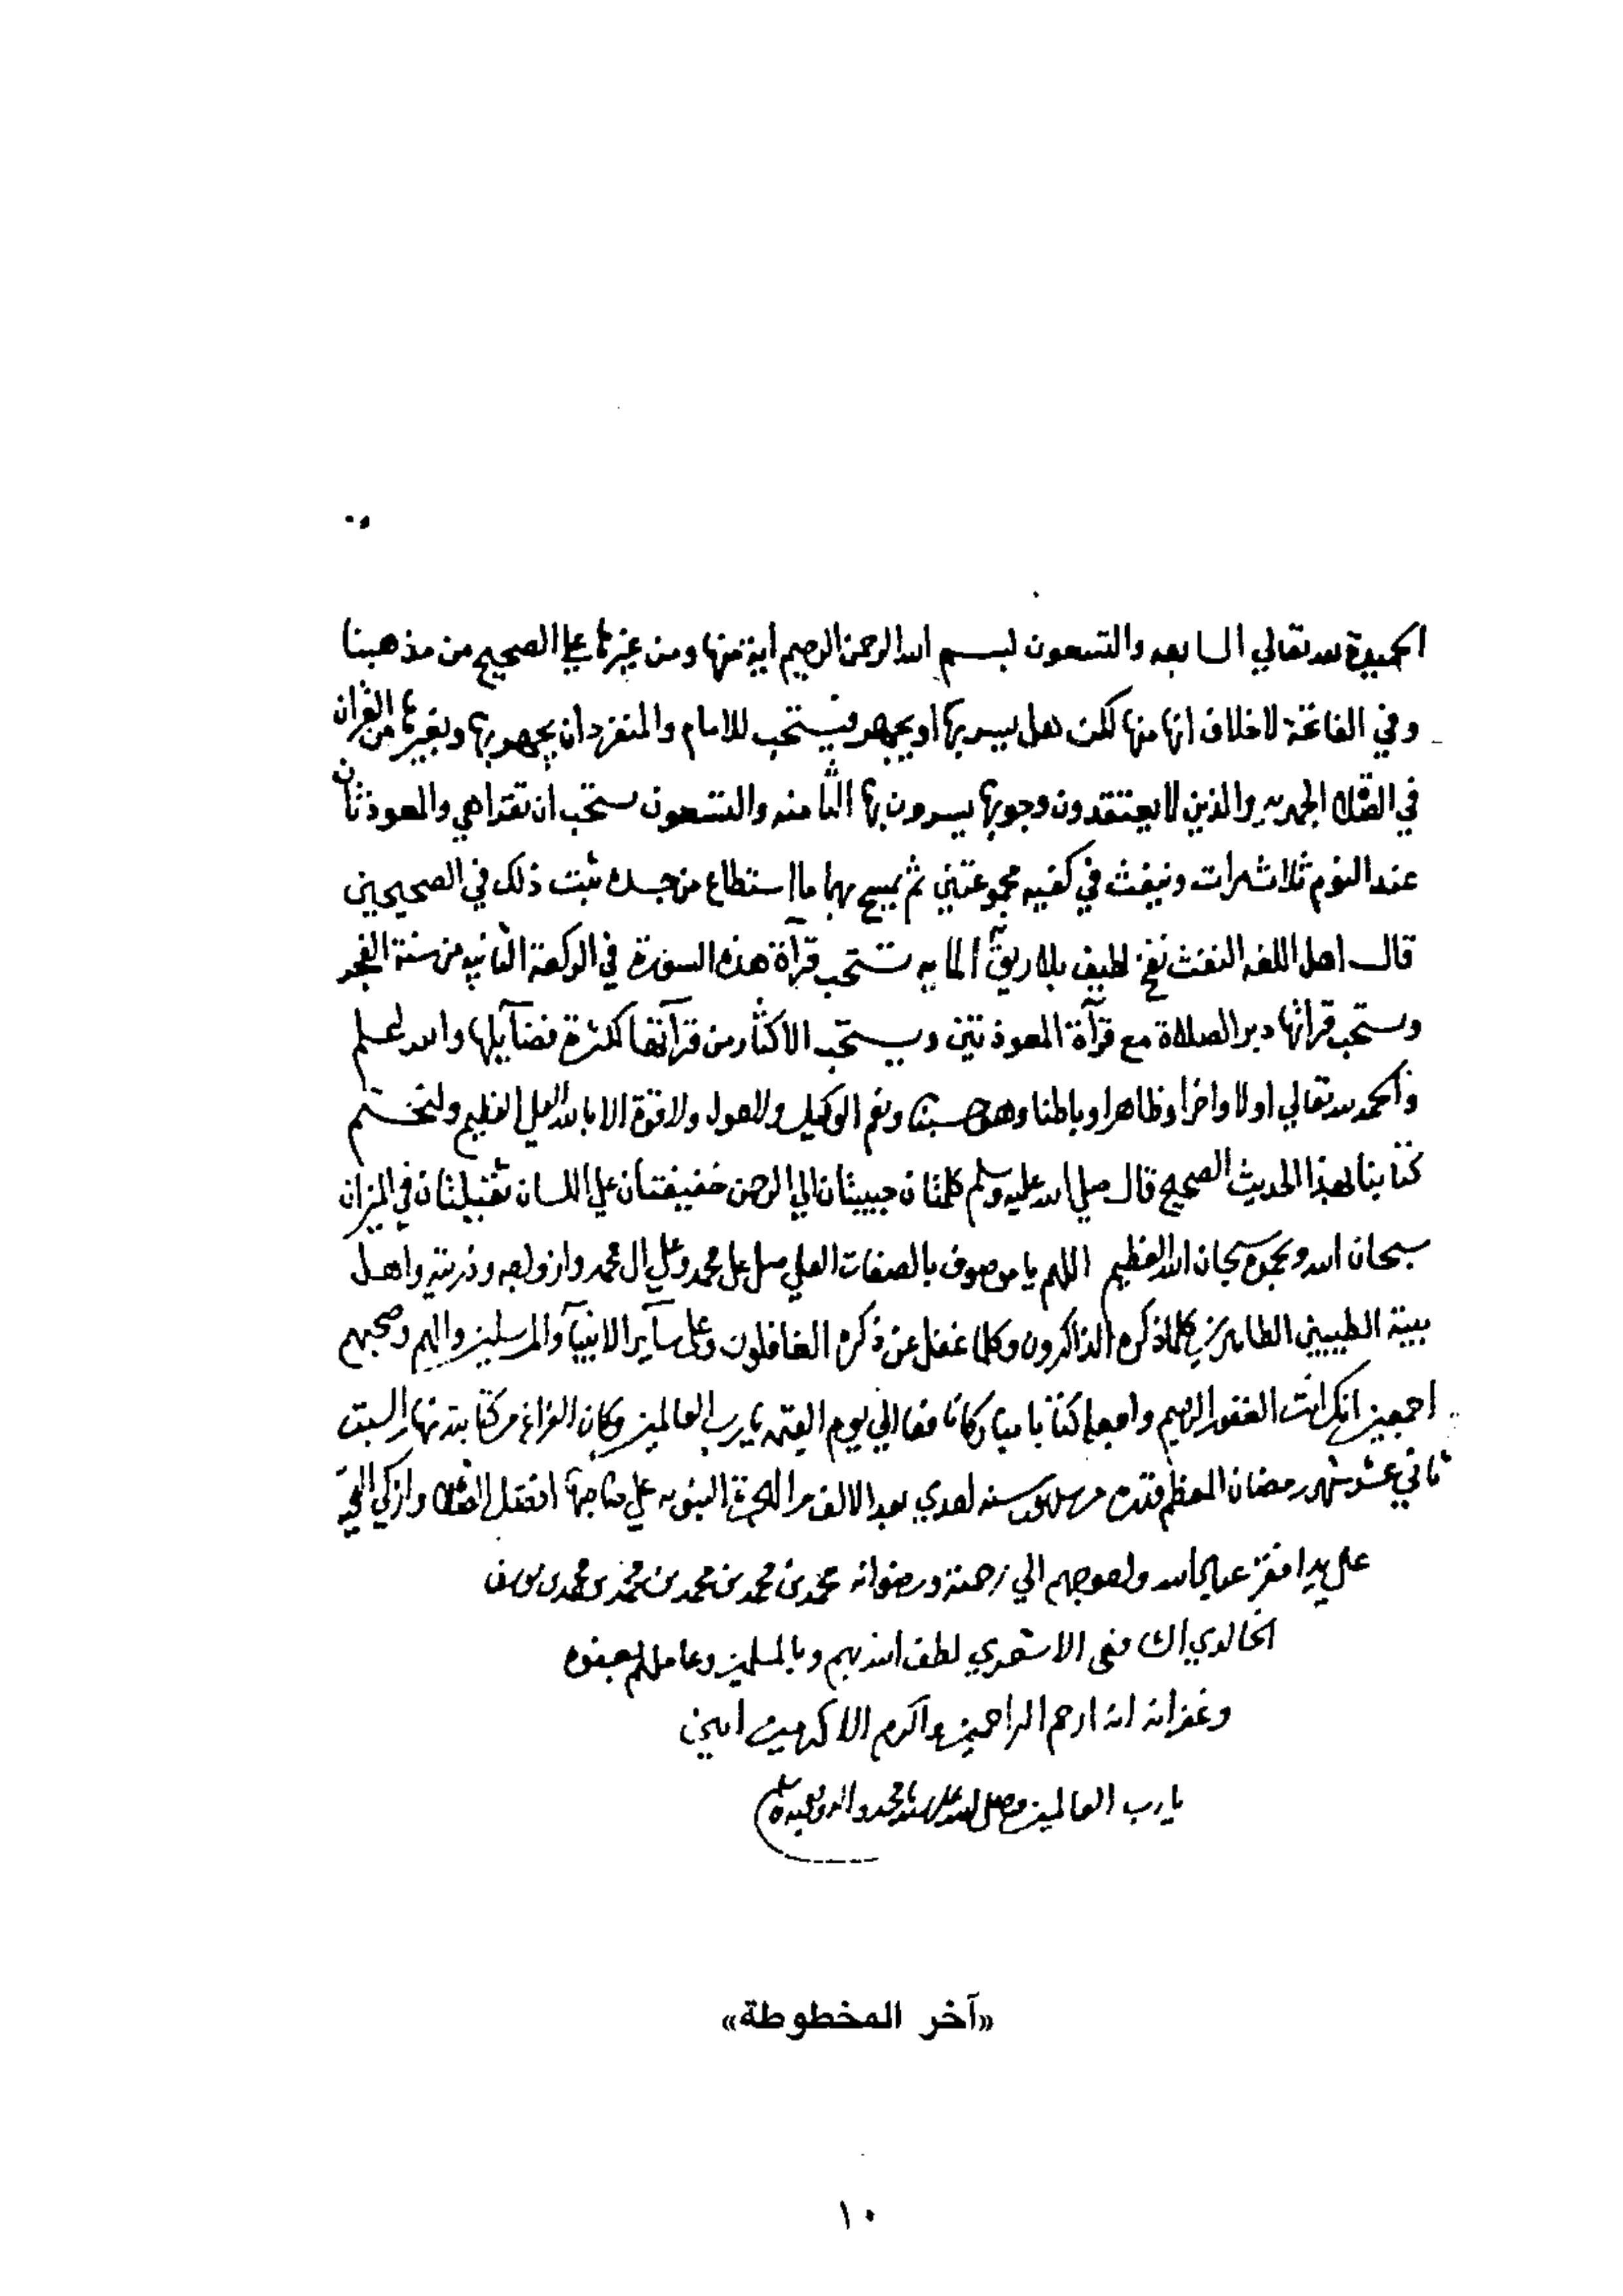 الحميدة لله تعالي السابعه والتسعون لبسم الله الرحمن الرحيم اية منها ومن غيرها علي الصحيح من مذهبنا
وفي الفاتحة لاخلاف انها منها لكن هل يسر بها او يجهر فيستحب للامام والمنفرد ان يجهر بها وبغيرها من القران
في الصلاة الجهريه والذين لا يعتقدون وجوبها يسرون بها الثامنه والتسعون يستحب ان تقرا هي والمعوذتان
عند النوم ثلاث مرات وينفث في كفيه مجموعتين ثم يمسح بهما ما استطاع من جسده ثبت ذلك في الصحيحين
قال اهل اللغه النفث نفخ لطيف بلا ريق المايه تستحب قرآة هذه السورة في الركعة الثانيه من سنة الفجر
ويستحب قراتها دبر الصلاة مع قرآة المعوذتين ويستحب الاكثار من قرآتها لكثرة فضآيلها والله اعلم
والحمد لله تعالي اولا واخرا وظاهرا وباطنا وهو حسبنا ونعم الوكيل ولا حول ولا قوة الا بالله العلي العظيم ولنختم
كتابنا بهذا الحديث الصحيح قال صلي الله عليه وسلم كلمتان حبيبتان الي الرحمن خفيفتان علي اللسان ثقيلتان في الميزان
سبحان الله وبحمده سبحان الله العظيم اللهم يا موصوف بالصفات العلي صل علي محمد وعلي ال محمد وازواجه وذريته واهل
بيته الطيبين الطاهرين كلما ذكره الذاكرون وكلما غفل عن ذكره الغافلون وعلى سآير الانبيآ والمرسلين والهم وصحبهم
اجمعين انك انت الغفور الرحيم واجعله كتابا مباركا نافعا الي يوم القيمه يا رب العالمين وكان الفراغ من كتابته نهار السبت
ثاني عشر شهر رمضان المعظم قدره من شهور سنه احدي بعد الالف من الهجرة النبويه علي صاحبها افضل الصلاة وازكي التحيه
علي يد افقر عباد الله واحوجهم الي رحمته ورضوانه محمد بن محمد بن محمد بن محمد بن محمد بن يوسف
الخالدي الشافعي الاشعري لطف الله بهم وبالمسلمين وعاملهم بعفوه
وغفرانه انه ارحم الراحمين واكرم الاكرمين امين
يا رب العالمين وصلى الله على سيدنا محمد واله وصحبه وسلم
«آخر المخطوطة»
١٠